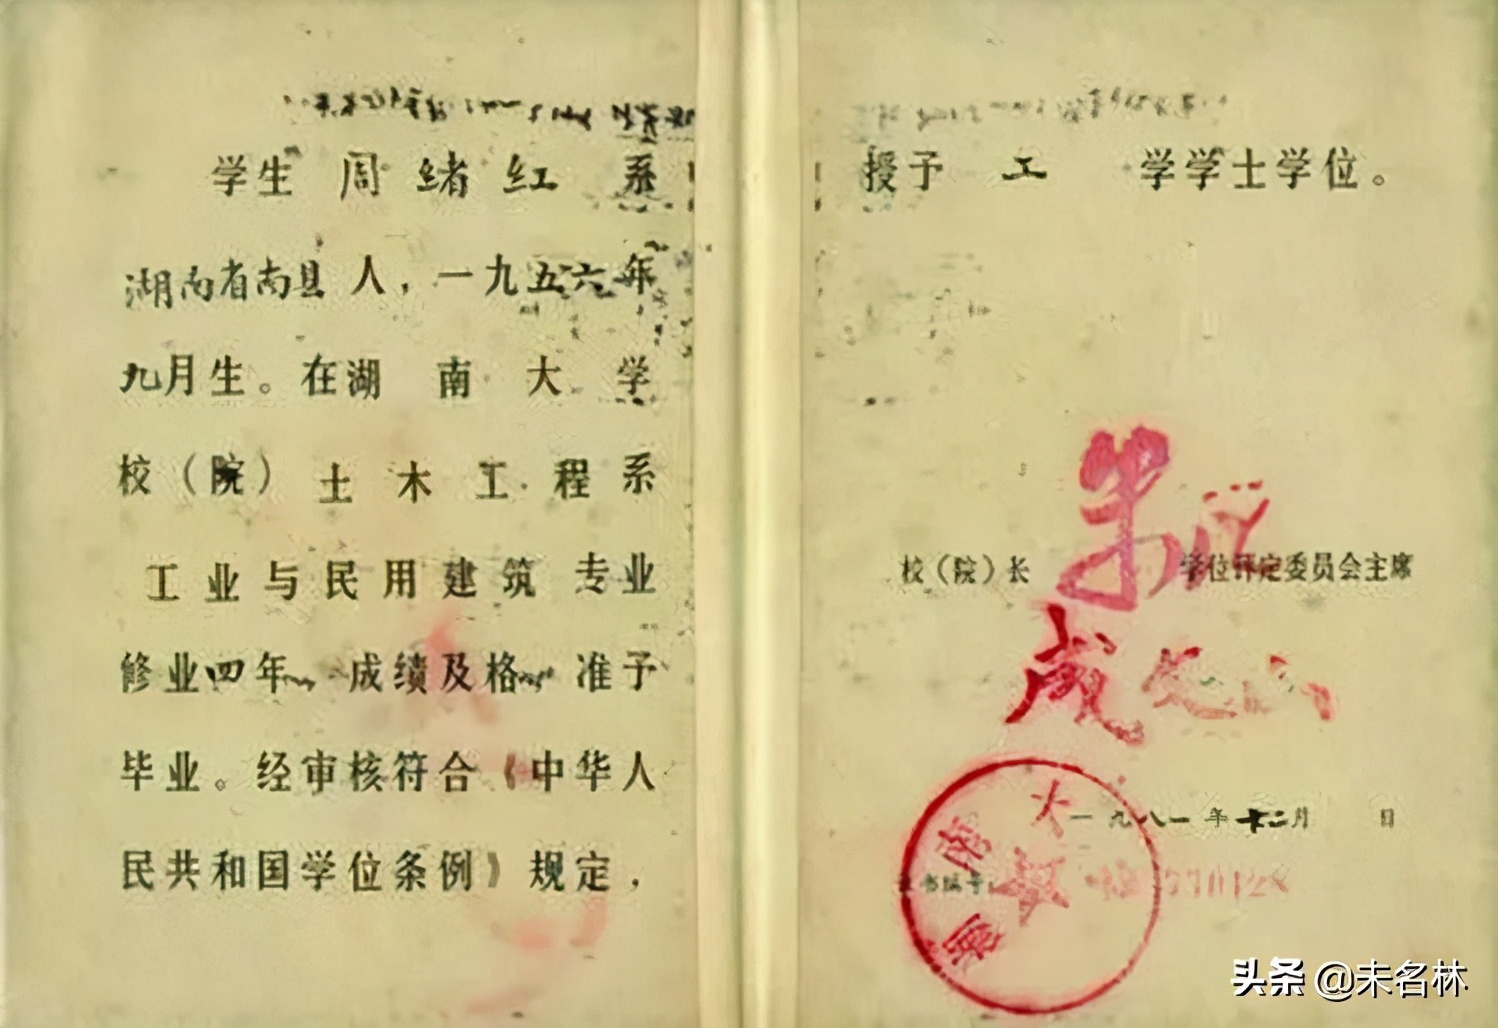 学生 周绪红 系
湖南省南县人，一九五六年
九月生。在湖南大学
校（院）土木工程系
工业与民用建筑 专业
修业四年 成绩及格 准予
毕业。经审核符合《中华人
民共和国学位条例》规定，
授予 工 学学士学位。
校（院）长
学位评定委员会主席
成
一九八一年十二月 日
书编号
湖南大
头条 @未名林